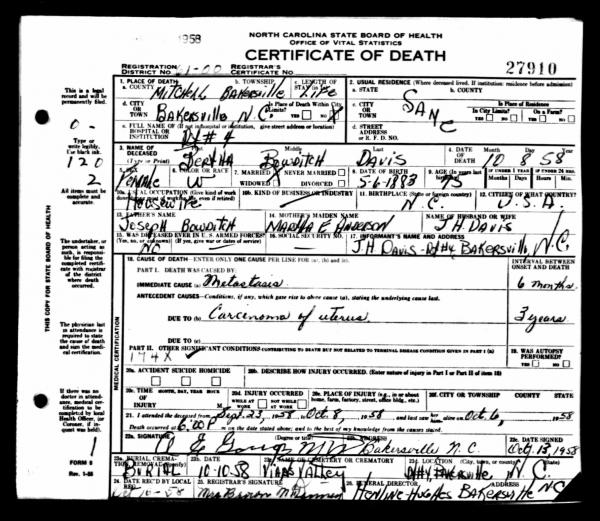 1958
NORTH CAROLINA STATE BOARD OF HEALTH
OFFICE OF VITAL STATISTICS
CERTIFICATE OF DEATH
REGISTRATION DISTRICT NO. 61-00 REGISTRAR'S CERTIFICATE NO. 27910
1. PLACE OF DEATH b. TOWNSHIP c. LENGTH OF STAY 2. USUAL RESIDENCE (Where deceased lived. If institution: residence before admission)
a. COUNTY Mitchell Bakersville Life a. STATE b. COUNTY
b. CITY OR TOWN Bakersville N.C. Is Place of Death Within City Limits? YES NO X c. CITY OR TOWN SAME Is Place of Residence In City Limits? YES NO On a Farm? YES NO
FULL NAME OF (If not in hospital or institution, give street address or location) HOSPITAL OR INSTITUTION Rt # 4 d. STREET ADDRESS OR R. F. D. NO.
3. NAME OF DECEASED (Type or Print) Bertha Bowditch Davis 4. DATE OF DEATH 10 8 58
5. SEX Female 6. COLOR OR RACE W 7. MARRIED X NEVER MARRIED WIDOWED DIVORCED 8. DATE OF BIRTH 5-6-1883 9. AGE 75
10a. USUAL OCCUPATION Housewife 10b. KIND OF BUSINESS OR INDUSTRY 11. BIRTHPLACE N.C. 12. CITIZEN OF WHAT COUNTRY? U.S.A.
13. FATHER'S NAME Joseph Bowditch 14. MOTHER'S MAIDEN NAME Martha E Anderson NAME OF HUSBAND OR WIFE J H Davis
15. WAS DECEASED EVER IN U. S. ARMED FORCES? (Yes, no, or unknown) (If yes, give war or dates of service) No 16. SOCIAL SECURITY NO. 17. INFORMANT'S NAME AND ADDRESS J H Davis - Rt #4 Bakersville, N.C.
18. CAUSE OF DEATH—ENTER ONLY ONE CAUSE PER LINE FOR (a), (b), and (c). INTERVAL BETWEEN ONSET AND DEATH
PART I. DEATH WAS CAUSED BY:
IMMEDIATE CAUSE (a) Metastasis 6 months
ANTECEDENT CAUSES—Conditions, if any, which gave rise to above cause (a), stating the underlying cause last.
DUE TO (b) Carcenoma of uterus 3 years
DUE TO (c)
PART II. OTHER SIGNIFICANT CONDITIONS CONTRIBUTING TO DEATH BUT NOT RELATED TO TERMINAL DISEASE CONDITION GIVEN IN PART I (a) 19. WAS AUTOPSY PERFORMED?
174X YES NO
20a. ACCIDENT SUICIDE HOMICIDE 20b. DESCRIBE HOW INJURY OCCURRED. (Enter nature of injury in Part I or Part II of item 18)
20c. TIME OF INJURY MONTH, DAY, YEAR, HOUR 20d. INJURY OCCURRED WHILE AT WORK NOT WHILE AT WORK 20e. PLACE OF INJURY (e.g., in or about home, farm, factory, street, office bldg., etc.) 20f. CITY OR TOWNSHIP COUNTY STATE
21. I attended the deceased from Sept 23, 1958 to Oct 8, 1958 and last saw her alive on Oct 6, 1958
Death occurred at 6:00 P m on the date stated above; and to the best of my knowledge from the causes stated.
22a. SIGNATURE (Degree or title) 22b. ADDRESS Bakersville, N.C. 22c. DATE SIGNED Oct 13, 1958
23a. BURIAL, CREMATION, REMOVAL Burial 23b. DATE 10-10-58 23c. NAME OF CEMETERY OR CREMATORY 23d. LOCATION (City, town, or county) (State) Rt #4, Bakersville N.C.
24. DATE REC'D BY LOCAL REG. 10-58 25. REGISTRAR'S SIGNATURE 26. FUNERAL DIRECTOR ADDRESS Henline Hughes Bakersville N.C.
This is a legal record and will be permanently filed.
0-
Type or write legibly. Use black ink.
120
2
All items must be complete and accurate.
The undertaker, or person acting as such, is responsible for filing the completed certificate with registrar of the district where death occurred.
The physician last in attendance is required to state the cause of death and sign the medical certification.
If there was no doctor in attendance, medical certification to be completed by local Health Officer, (or Coroner, if inquest was held).
1
FORM 8
THIS COPY FOR STATE BOARD OF HEALTH
MEDICAL CERTIFICATION